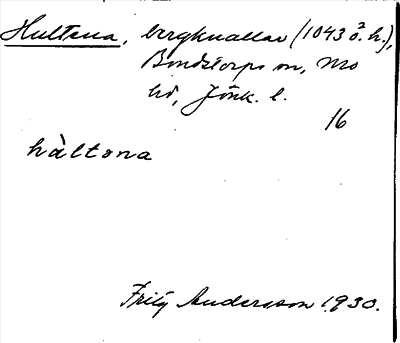 Hultana, bergknallar (1043 ö. h.),
Bondstorps sn, Mo
hd, Jönk. l.
16
hàltona
Fritz Andersson 1930.